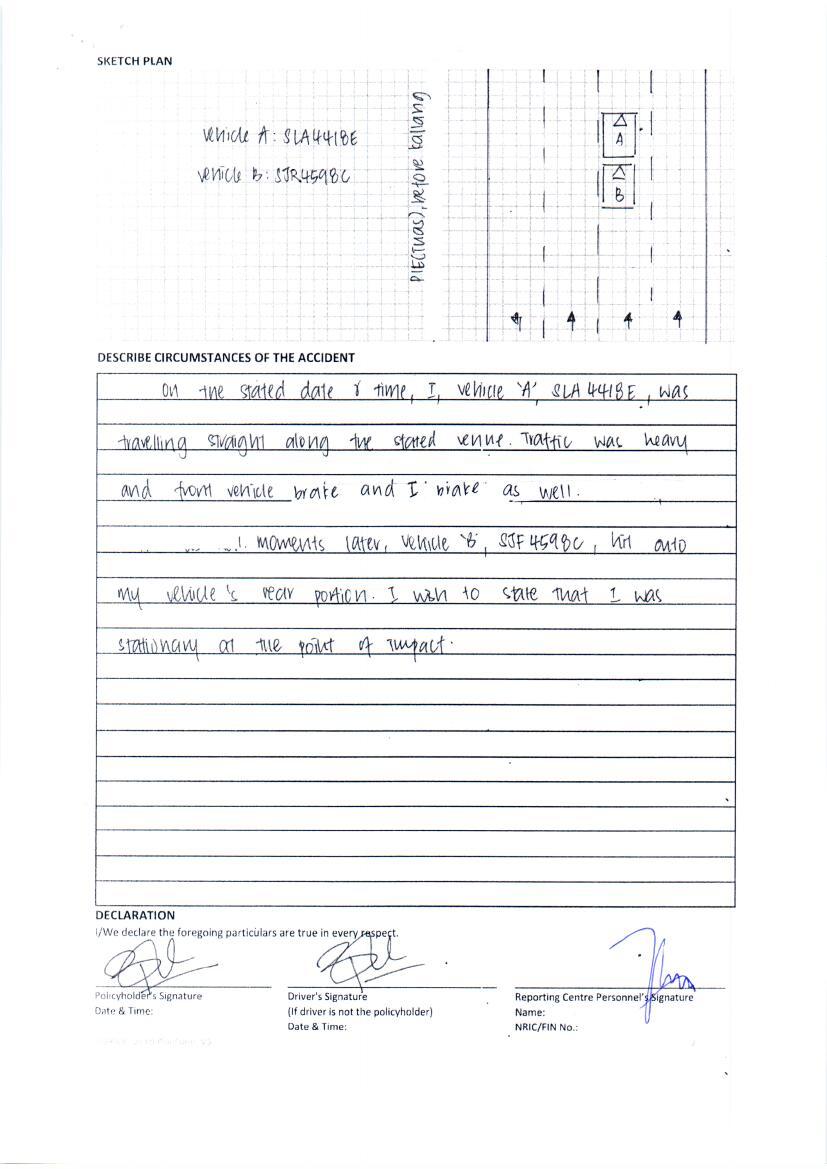 SKETCH PLAN
Vehicle A: SLA4418E
Vehicle B: SJR4598C
PIE(Tuas), before kallang
A
B
DESCRIBE CIRCUMSTANCES OF THE ACCIDENT
On the stated date & time, I, vehicle 'A', SLA 4418E, was
travelling straight along the stated venue. Traffic was heavy
and front vehicle brake and I brake as well.
moments later, vehicle 'B', SJF 4598C, hit onto
my vehicle's rear portion. I wish to state that I was
stationary at the point of impact.
DECLARATION
I/We declare the foregoing particulars are true in every respect.
Policyholder's Signature
Date & Time:
Driver's Signature
(If driver is not the policyholder)
Date & Time:
Reporting Centre Personnel's Signature
Name:
NRIC/FIN No.: